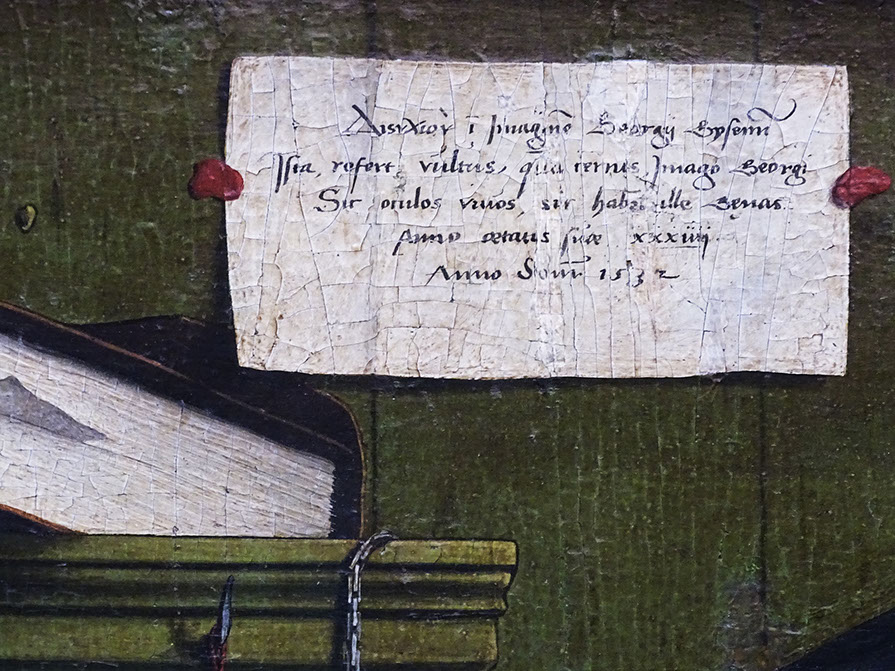 Δίστιχον ī Imaginē Georgii Gysenii
Ista refert vultus, quā cernis, Imago Georgi
Sic oculos vivos, sic habet ille Genas
Anno ætatis suæ xxxiiij
Anno dom̄ 1532